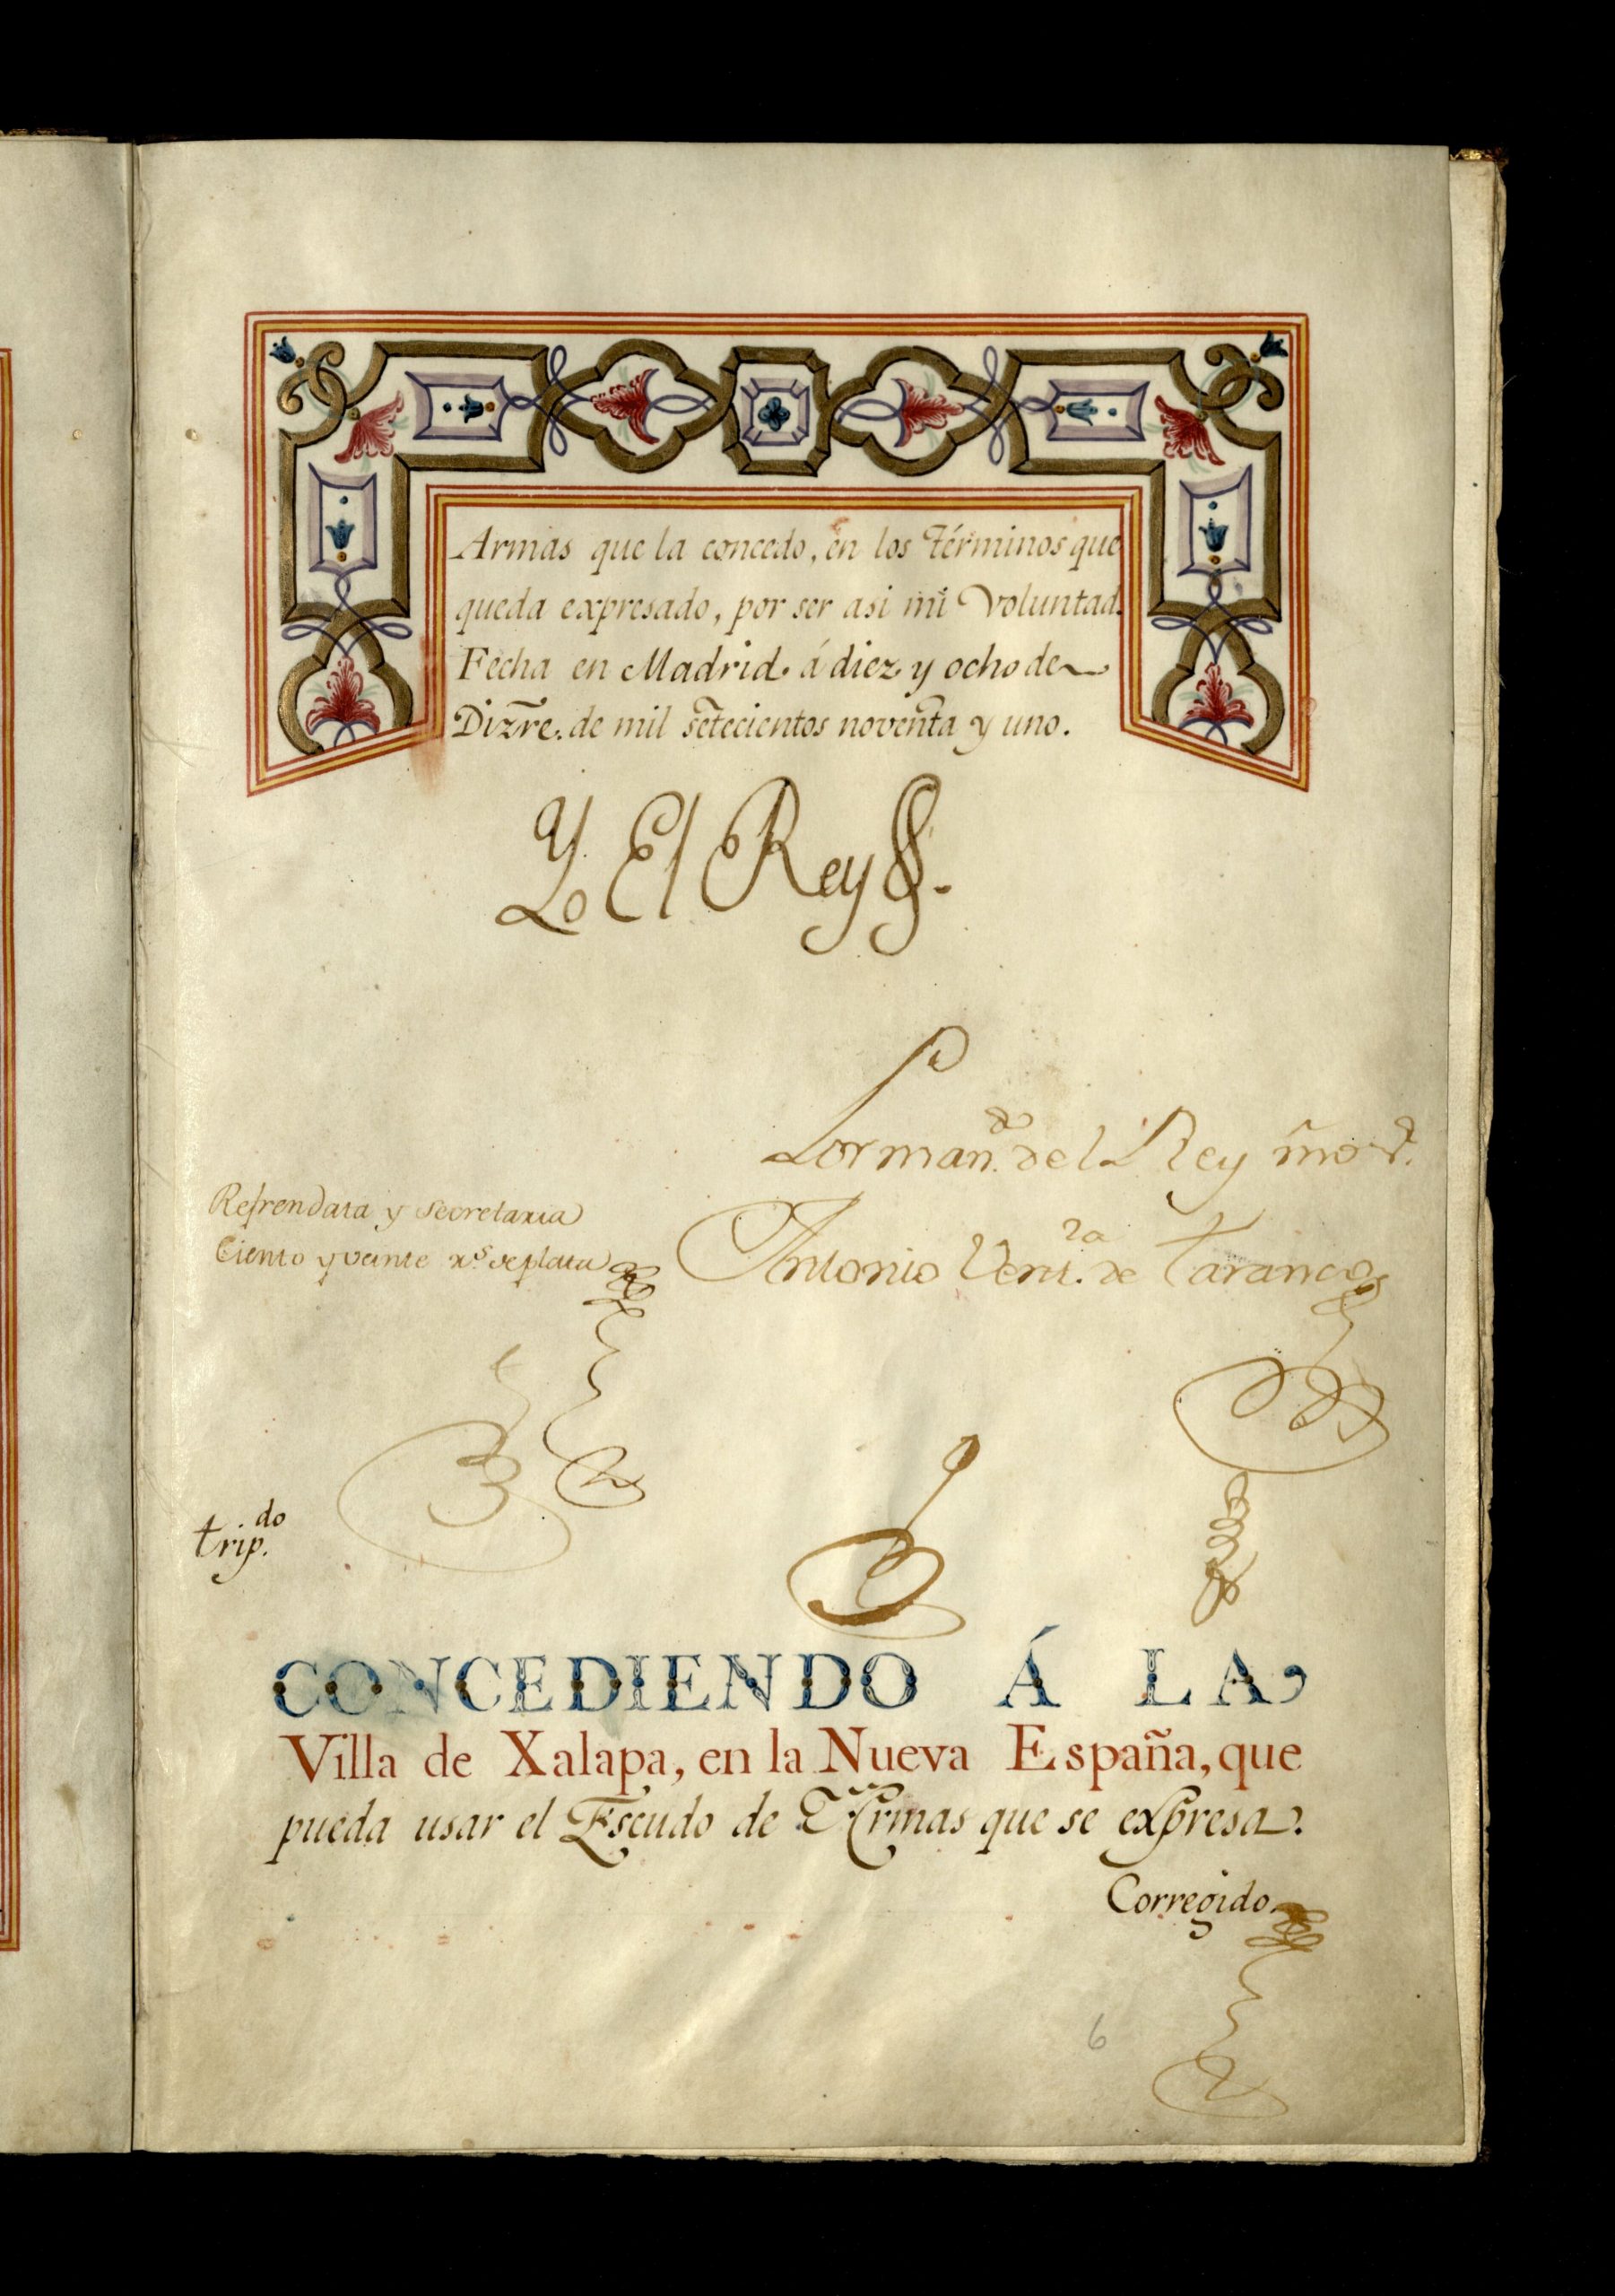 Armas que la concedo, en los términos que
queda expresado, por ser asi mi Voluntad.
Fecha en Madrid. á diez y ocho de
Dizre. de mil setecientos noventa y uno.
Yo El Rey
Por man.do del Rey ñro S.r
Antonio Vent.ra de Taranco
Refrendata y Secretaria
Ciento y veinte r.s de plata
trip.do
CONCEDIENDO Á LA
Villa de Xalapa, en la Nueva España, que
pueda usar el Escudo de Armas que se expresa.
Corregido.
6